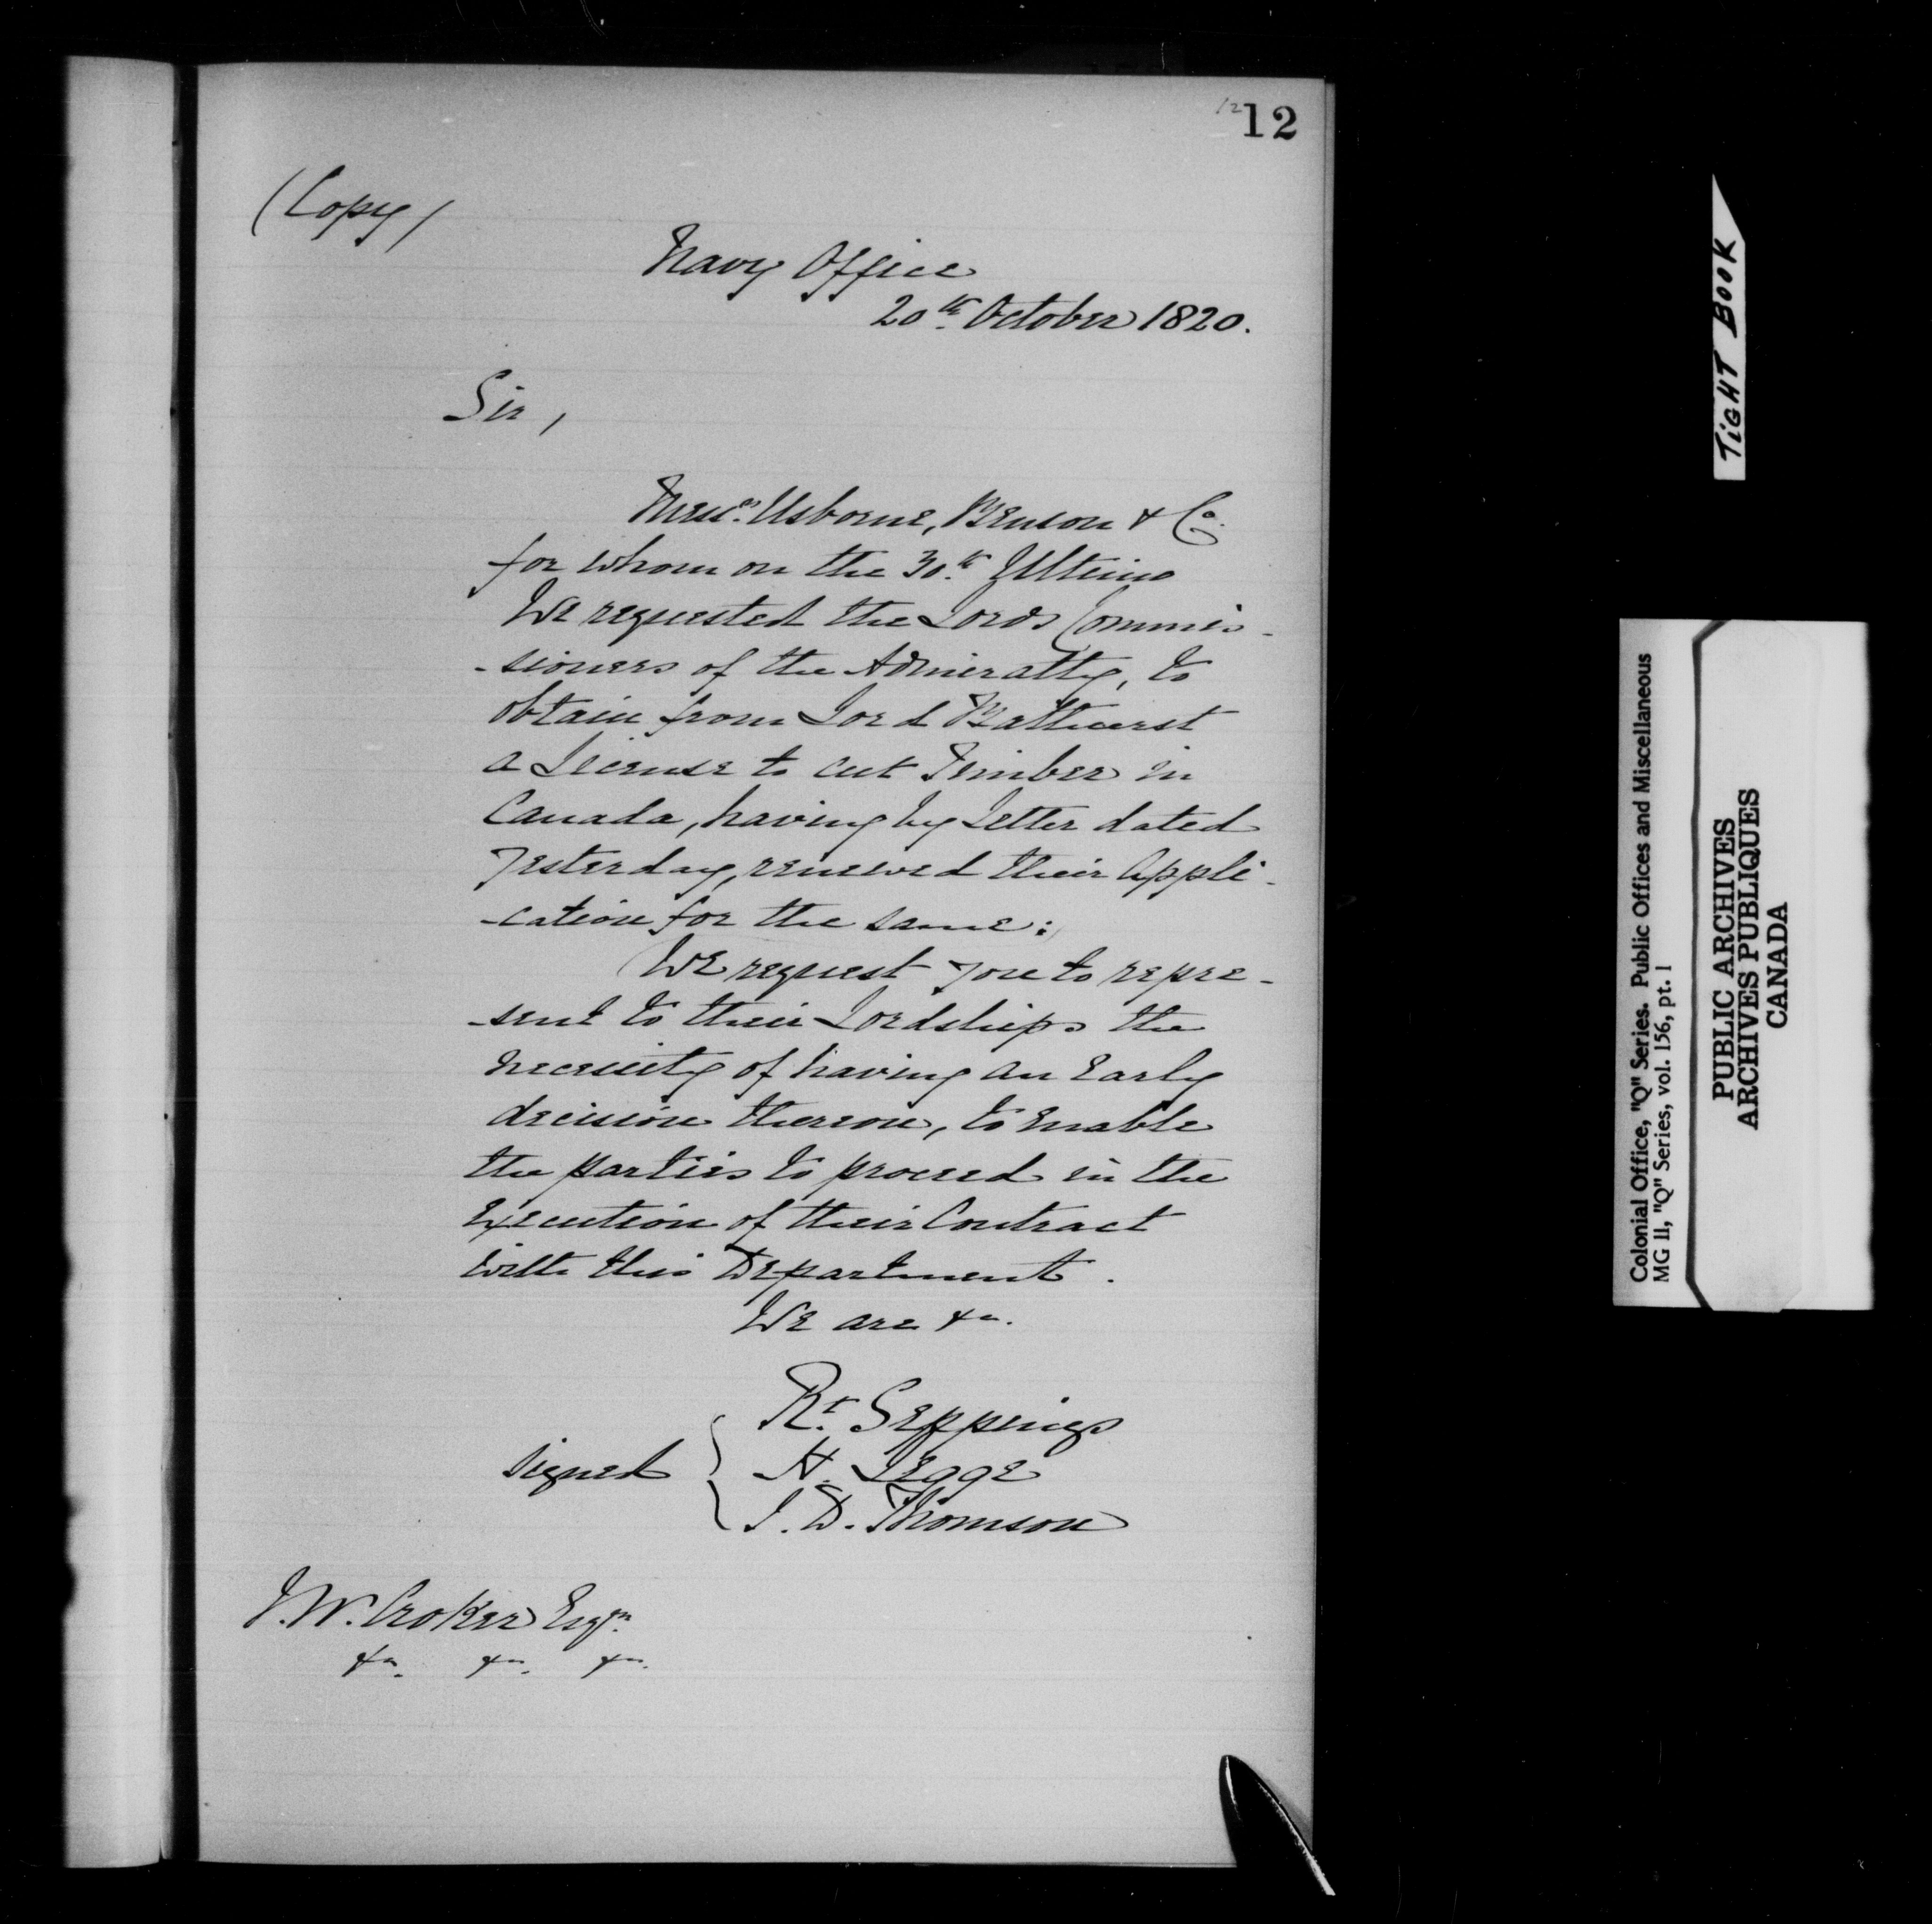 12 12
(Copy)
Navy Office
20th October 1820.
Sir,
Messrs. Usborne, Benson & Co.
for whom on the 30th Ultimo
We requested the Lords Commis-
-sioners of the Admiralty, to
obtain from Lord Bathurst
a License to cut Timber in
Canada, having by Letter dated
Yesterday, renewed their Appli-
-cation for the same:
We request you to repre-
-sent to their Lordships the
necessity of having an Early
decision thereon, to enable
the parties to proceed in the
Execution of their Contract
with this Department.
We are &c.
Rt. Seppings
signed H. Legge
J. D. Thomson
J. W. Croker Esqr.
&c. &c. &c.
TIGHT BOOK
Colonial Office, "Q" Series. Public Offices and Miscellaneous
MG 11, "Q" Series, vol. 156, pt. 1
PUBLIC ARCHIVES
ARCHIVES PUBLIQUES
CANADA